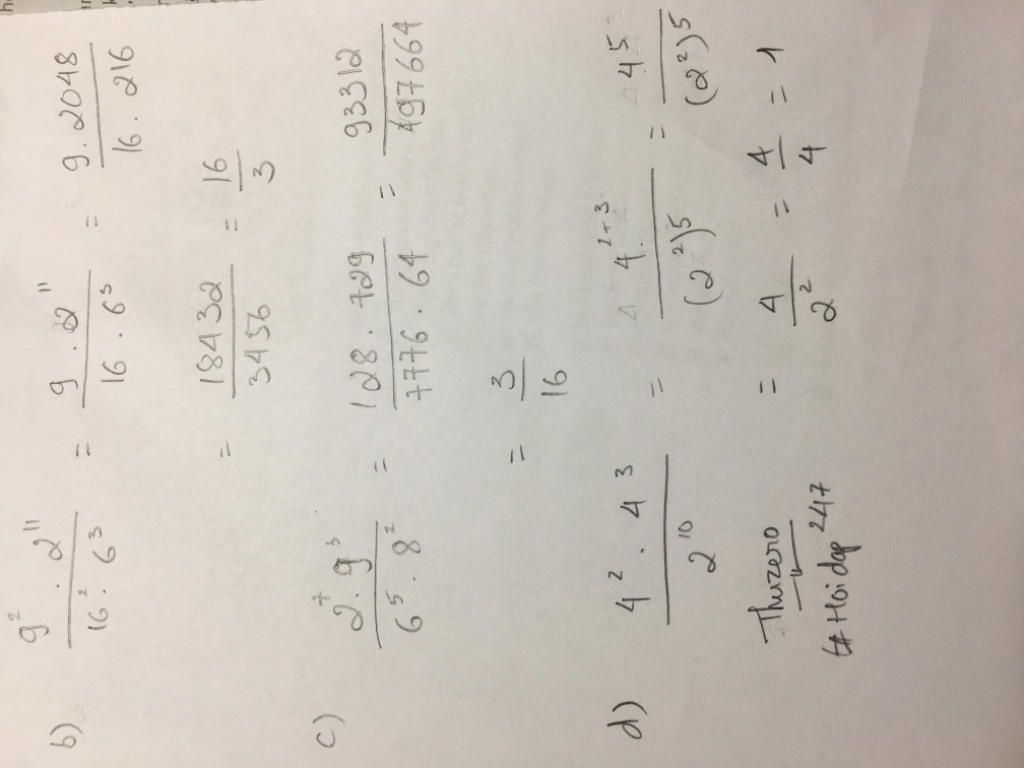 b) 9² . 2¹¹ / 16² . 6³ = 9 . 2¹¹ / 16 . 6³ = 9 . 2048 / 16 . 216
= 18432 / 3456 = 16 / 3
c) 2⁷ . 9³ / 6⁵ . 8² = 128 . 729 / 7776 . 64 = 93312 / 497664
= 3 / 16
d) 4² . 4³ / 2¹⁰ = 4²⁺³ / (2²)5 = 45 / (2²)5
= 4 / 2² = 4 / 4 = 1
Thuzero
#Hoidap247